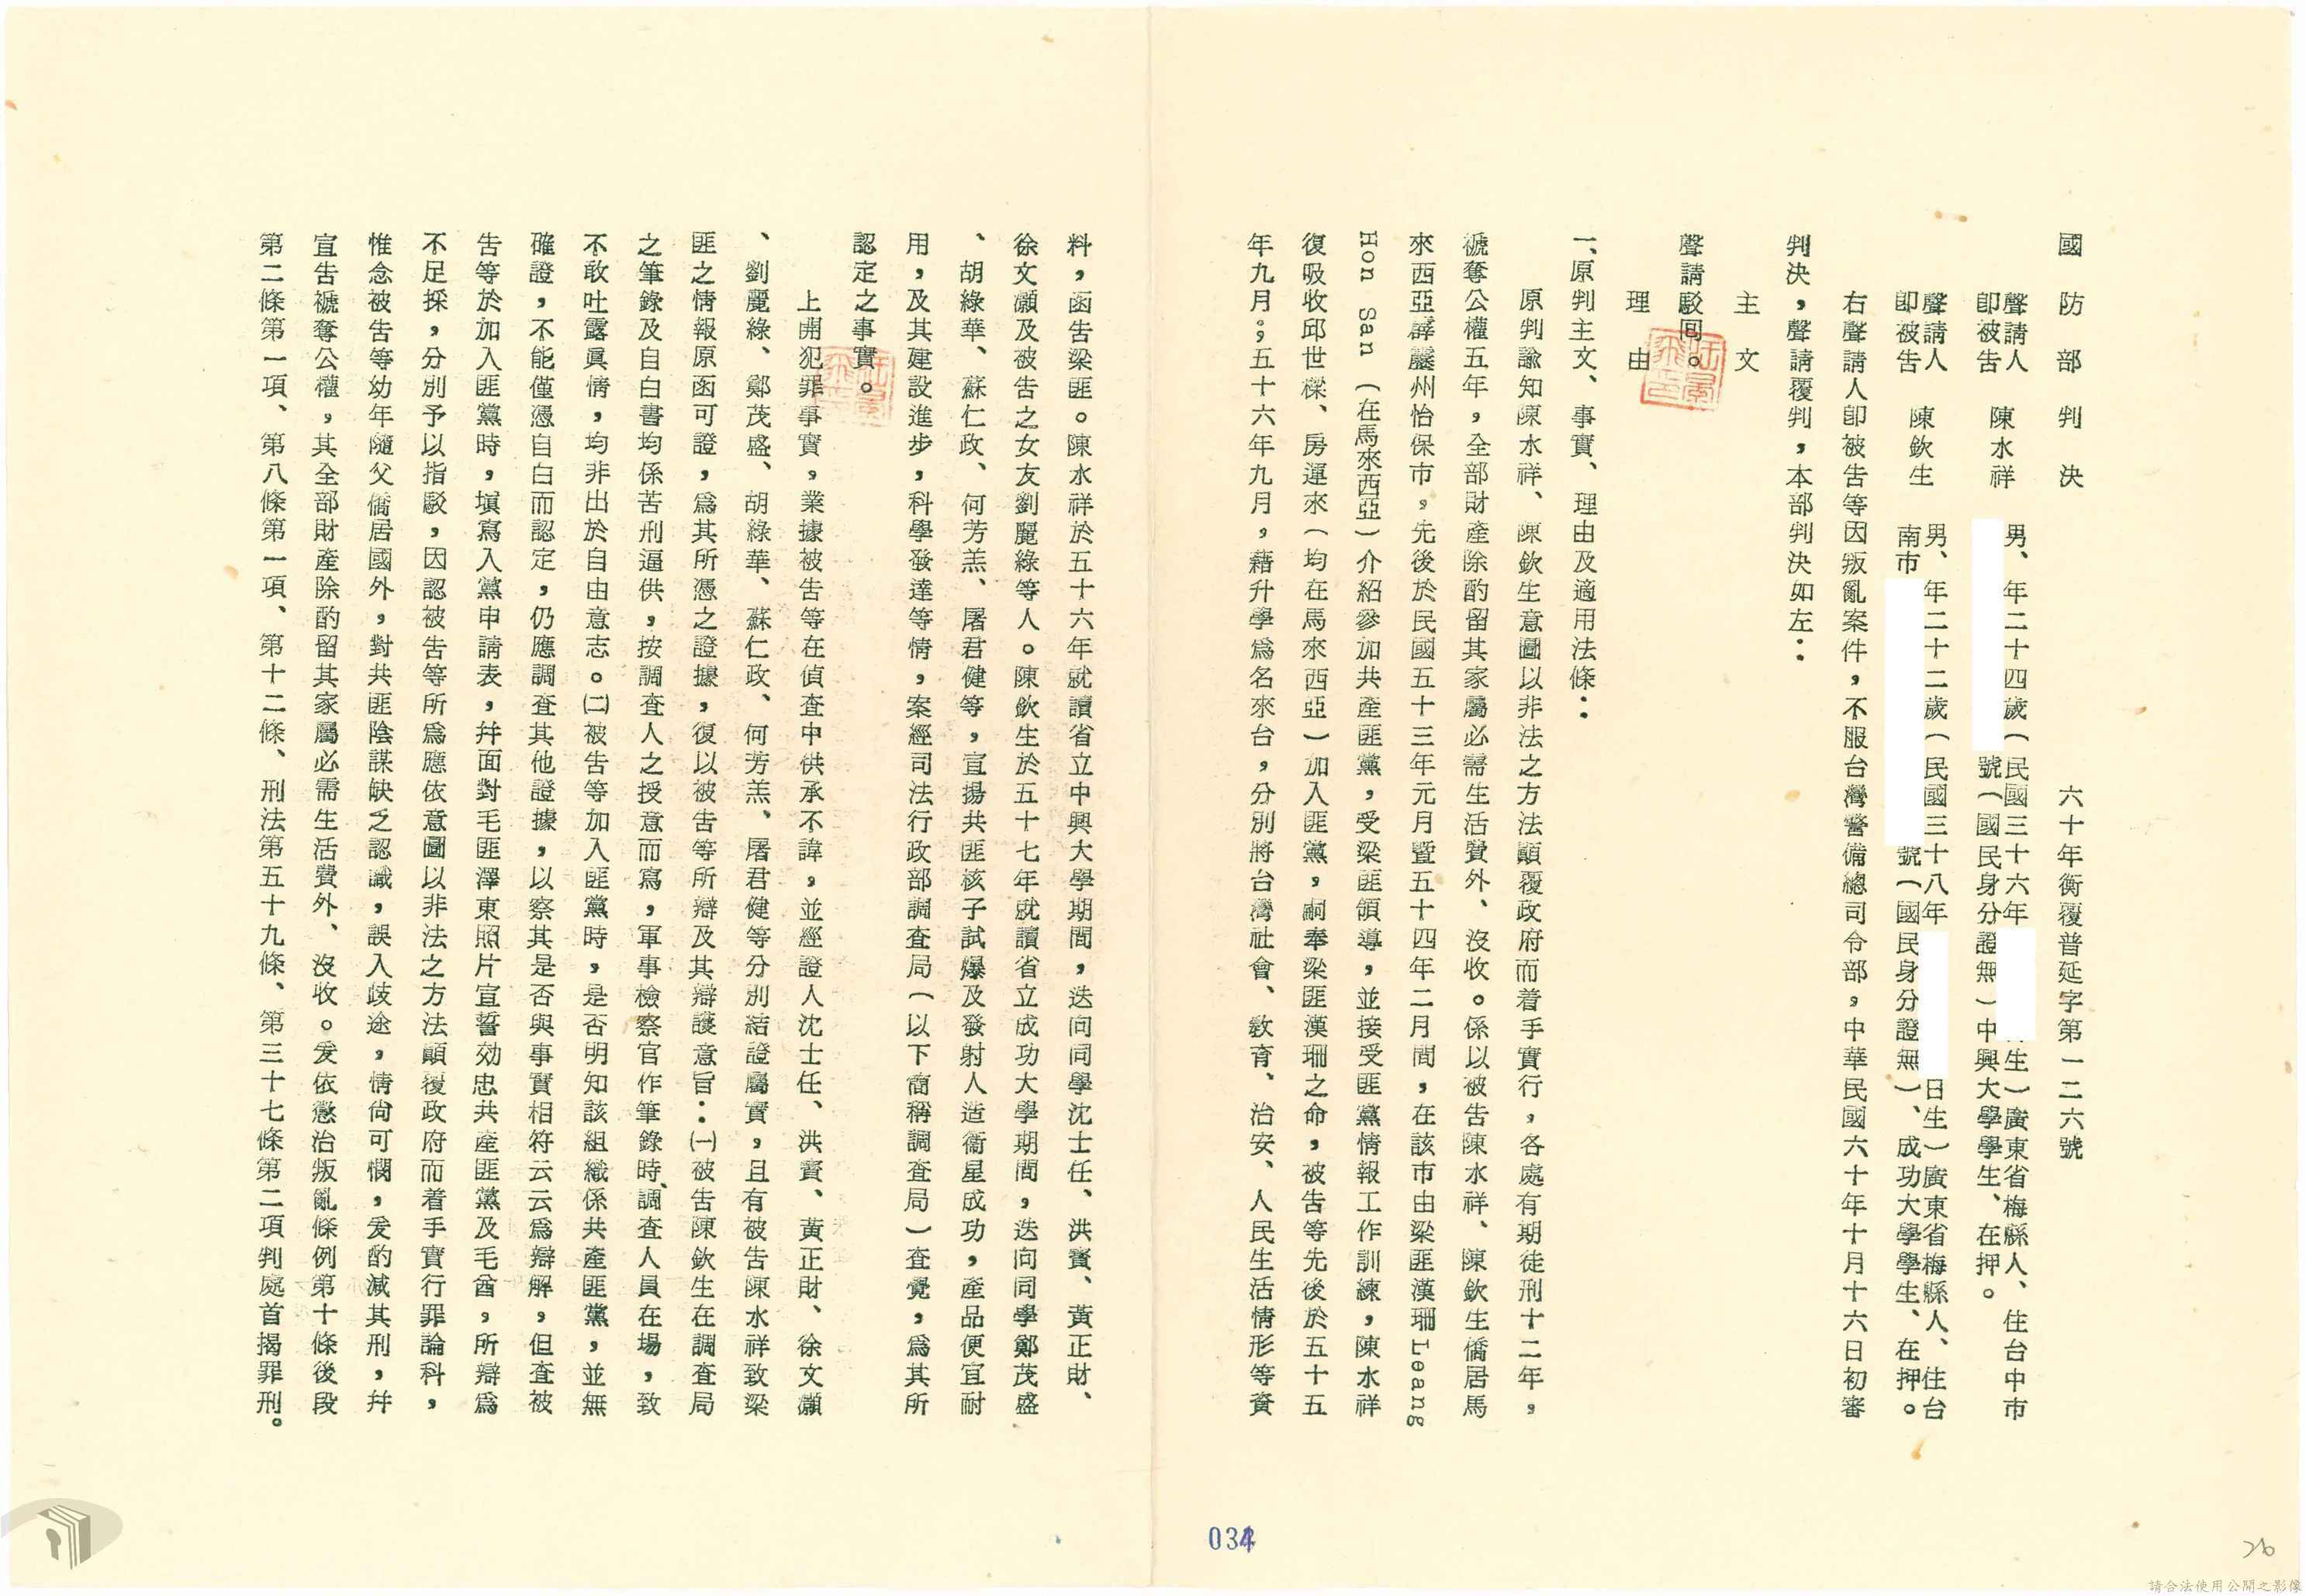 國防部判決
六十年衡覆普延字第一二六號
聲請人
即被告 陳水祥
男、年二十四歲(民國三十六年 生)廣東省梅縣人、住台中市
號(國民身分證無)中興大學學生、在押。
聲請人
即被告 陳欽生
男、年二十二歲(民國三十八年 日生)廣東省梅縣人、住台
南市 號(國民身分證無)、成功大學學生、在押。
右聲請人即被告等因叛亂案件,不服台灣警備總司令部,中華民國六十年十月十六日初審
判決,聲請覆判,本部判決如左:
主文
聲請駁回。
理由
一、原判主文、事實、理由及適用法條:
原判諭知陳水祥、陳欽生意圖以非法之方法顛覆政府而着手實行,各處有期徒刑十二年,
褫奪公權五年,全部財產除酌留其家屬必需生活費外、沒收。係以被告陳水祥、陳欽生僑居馬
來西亞霹靂州怡保市,先後於民國五十三年元月暨五十四年二月間,在該市由梁匪漢珊Leang
Hon San(在馬來西亞)介紹參加共產匪黨,受梁匪領導,並接受匪黨情報工作訓練,陳水祥
復吸收邱世樑、房運來(均在馬來西亞)加入匪黨,嗣奉梁匪漢珊之命,被告等先後於五十五
年九月。;五十六年九月,藉升學為名來台,分別將台灣社會、教育、治安、人民生活情形等資
料,函告梁匪。陳水祥於五十六年就讀省立中興大學期間,迭向同學沈士任、洪賓、黃正財、
徐文灝及被告之女友劉麗綠等人。陳欽生於五十七年就讀省立成功大學期間,迭向同學鄭茂盛
、胡綠華、蘇仁政、何芳羔、屠君健等,宣揚共匪核子試爆及發射人造衛星成功,產品便宜耐
用,及其建設進步,科學發達等情,案經司法行政部調查局(以下簡稱調查局)查覺,為其所
認定之事實。
上開犯罪事實,業據被告等在偵查中供承不諱,並經證人沈士任、洪賓、黃正財、徐文灝
、劉麗綠、鄭茂盛、胡綠華、蘇仁政、何芳羔、屠君健等分別結證屬實,且有被告陳水祥致梁
匪之情報原函可證,為其所憑之證據,復以被告等所辯及其辯護意旨:㈠被告陳欽生在調查局
之筆錄及自白書均係苦刑逼供,按調查人之授意而寫,軍事檢察官作筆錄時、調查人員在場,致
不敢吐露真情,均非出於自由意志。㈡被告等加入匪黨時,是否明知該組織係共產匪黨,並無
確證,不能僅憑自白而認定,仍應調查其他證據,以察其是否與事實相符云云為辯解,但查被
告等於加入匪黨時,填寫入黨申請表,并面對毛匪澤東照片宣誓効忠共產匪黨及毛酋,所辯為
不足採,分別予以指駁,因認被告等所為應依意圖以非法之方法顛覆政府而着手實行罪論科,
惟念被告等幼年隨父僑居國外,對共匪陰謀缺乏認識,誤入歧途,情尙可憫,爰酌減其刑,并
宣告褫奪公權,其全部財產除酌留其家屬必需生活費外、沒收。爰依懲治叛亂條例第十條後段
第二條第一項、第八條第一項、第十二條、刑法第五十九條、第三十七條第二項判處首揭罪刑。
034
26
請合法使用公開之影像